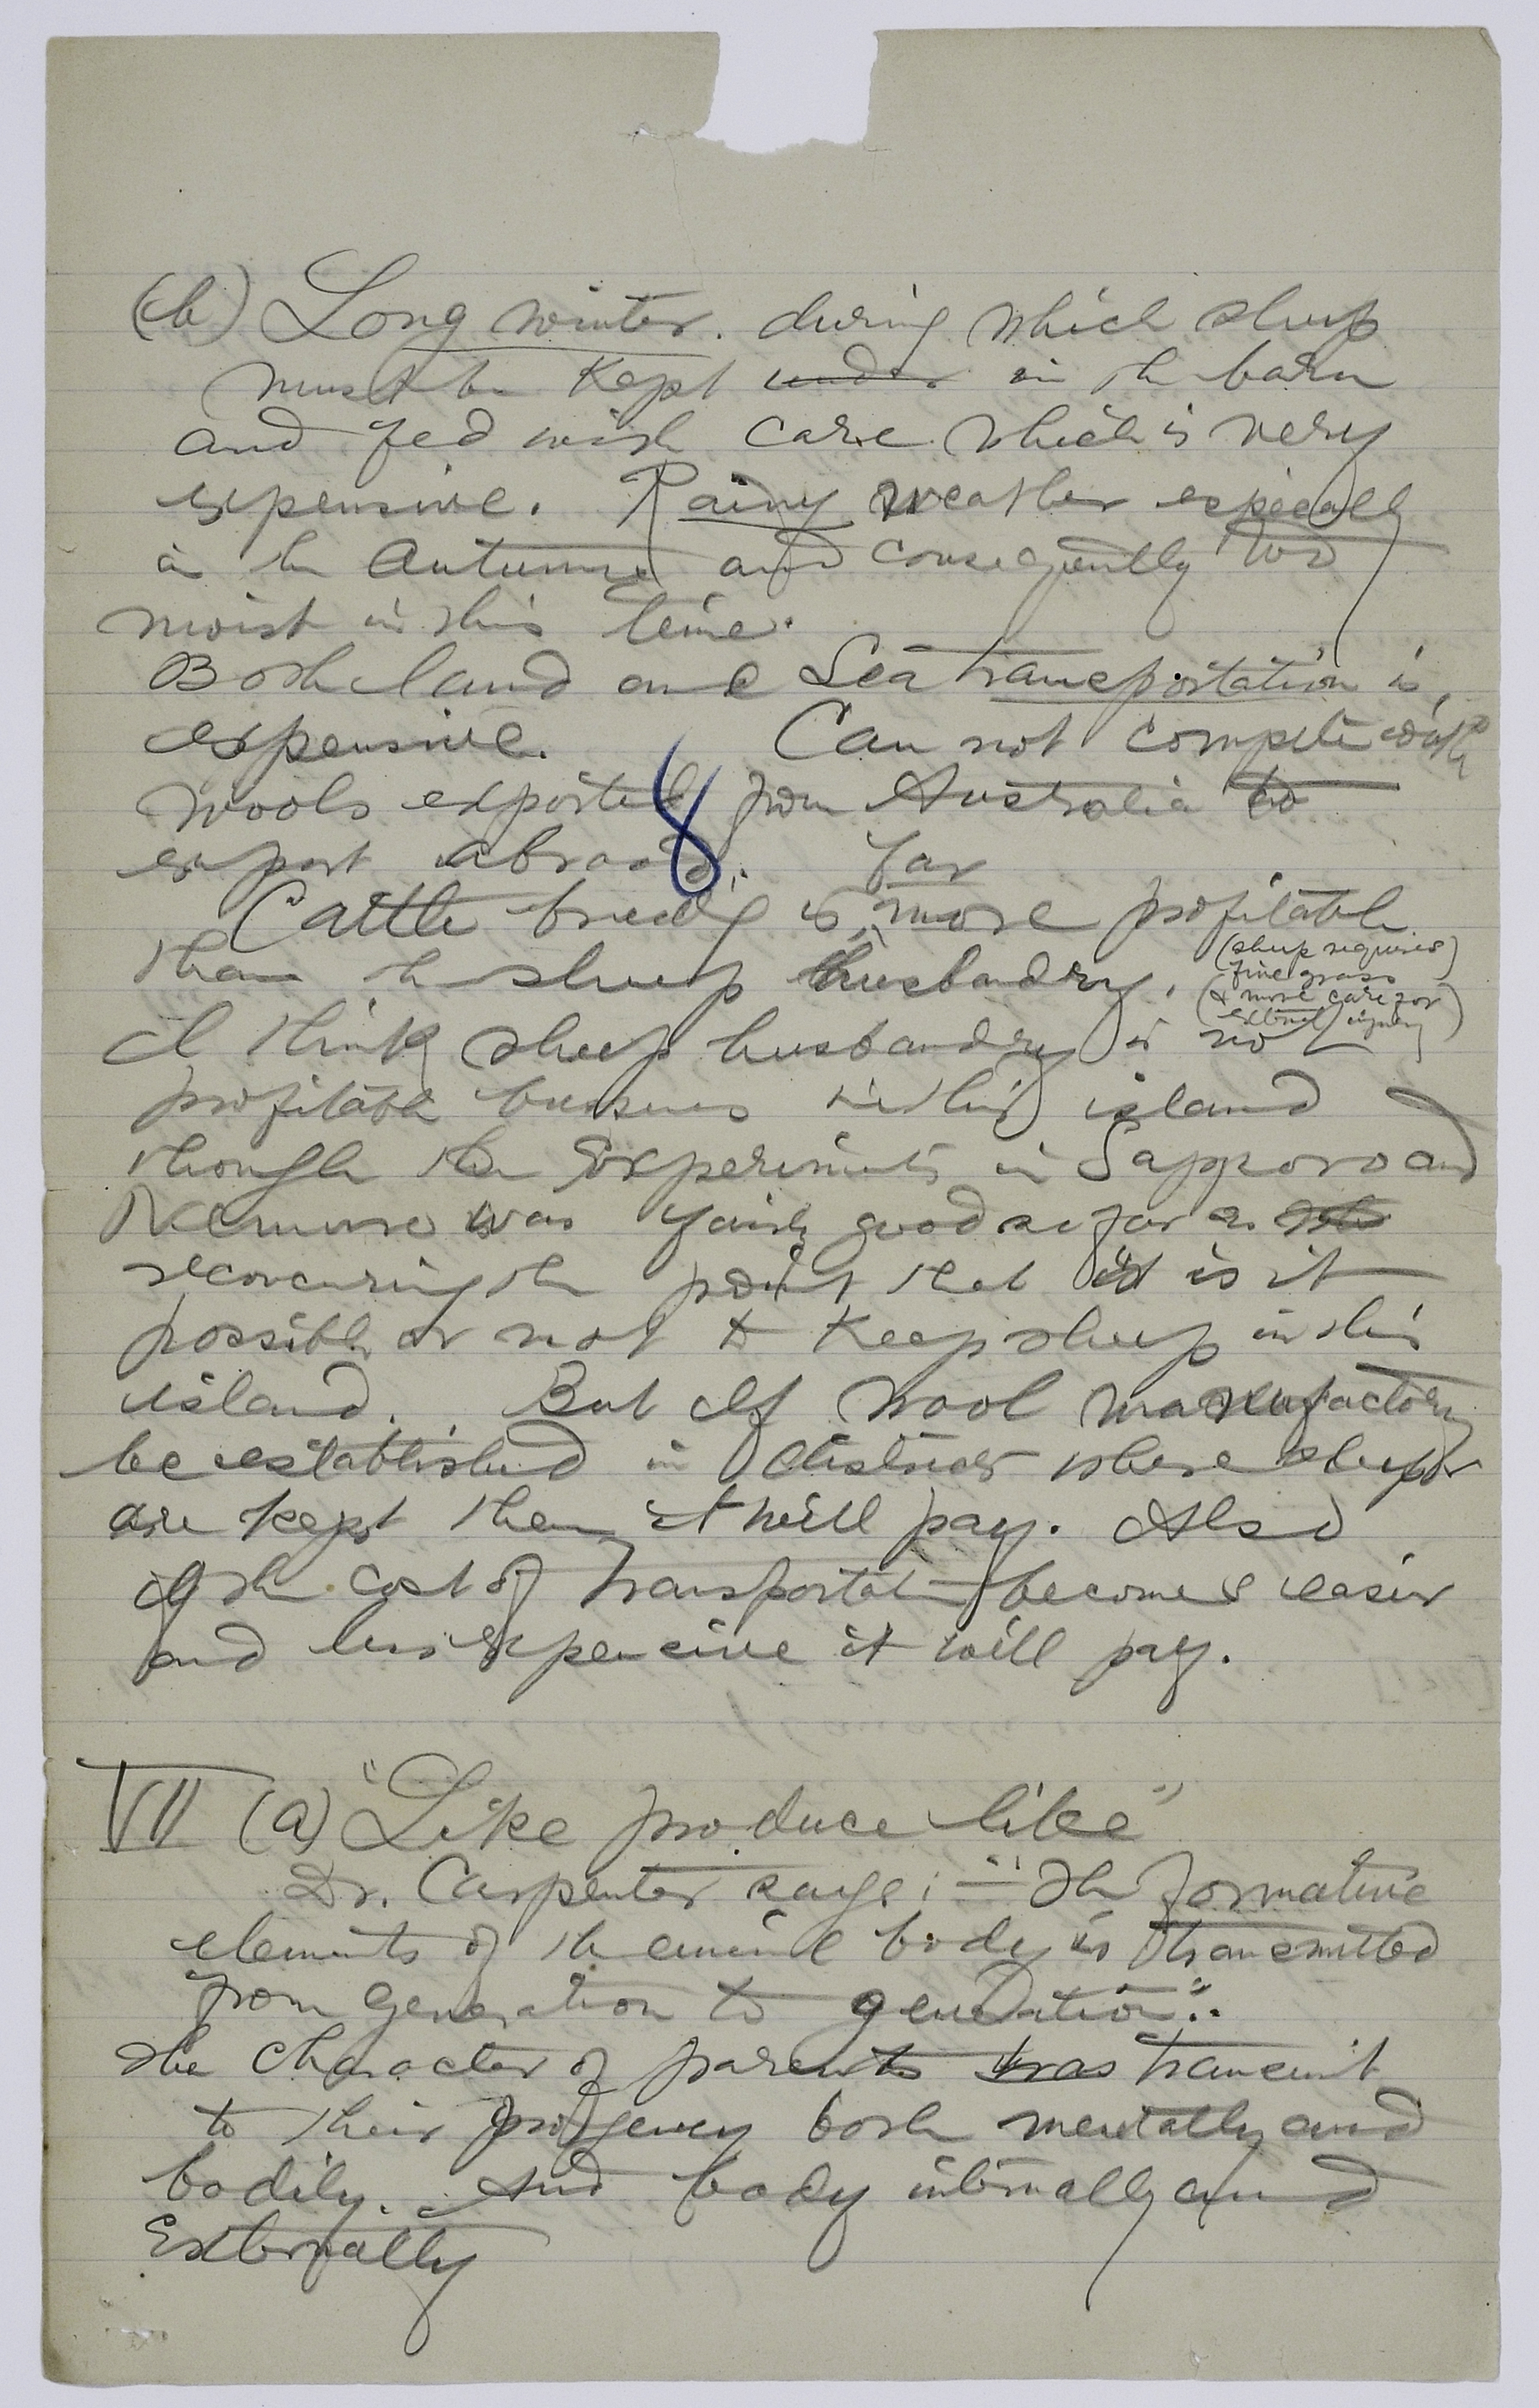 (b) Long winter. during which sheep
must be kept under in the barn
and fed with care which is very
expensive. Rainy weather especially
in the Autumn and consequently too
moist in this time.
Both land and Sea transportation is
expensive. Can not compete with
wools exported from Australia to
export abroad.
8
far
Cattle breedg is more profitable
than the sheep husbandry.
(sheep requires)
fine grass
(& more care for
external injury)
I think sheep husbandry is no
profitable bussness in this island
though the Experiments in Sapporo and
Nemuro was fairly good as far as
concerning the point that it is it
possible or not to keep sheep in this
island. But If wool manufactory
be established in district where sheeps
are kept then it will pay. Also
if the cost of transportation becomes easier
and less expensive it will pay.
VII (a) "Like produce like"
Dr. Carpenter says:— "The formative
elements of the animal body is transmitted
from generation to generation".
The character of parents was transmit
to their progeney both mentally and
bodily. And body internally and
Externally